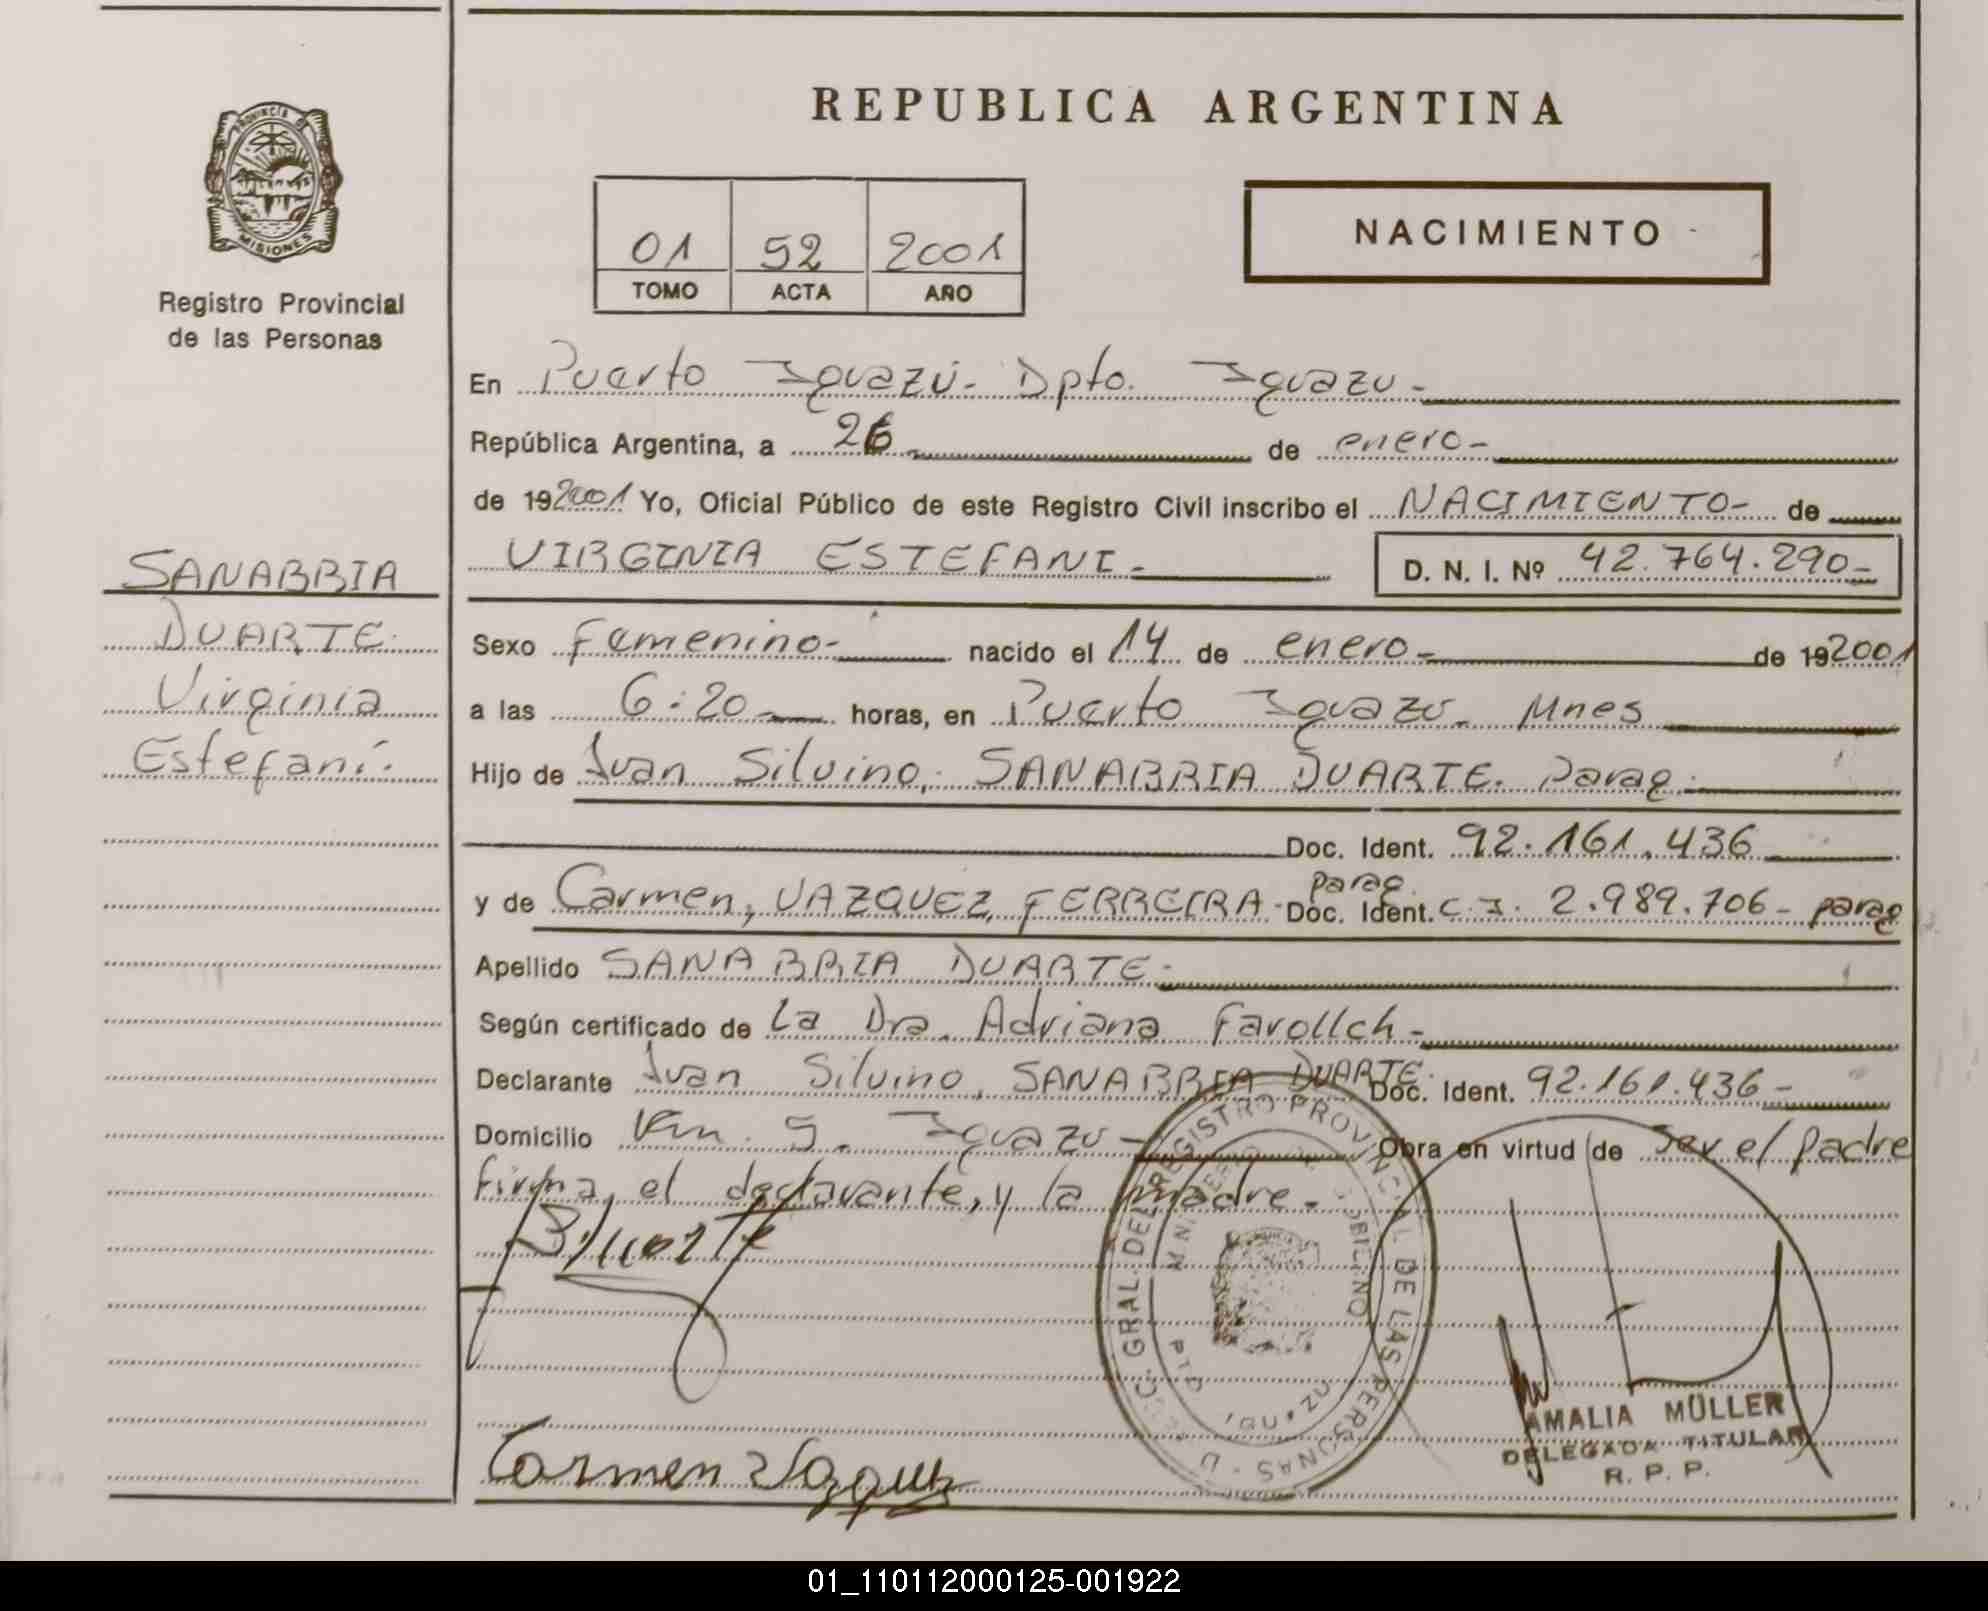 REPUBLICA ARGENTINA
PROVINCIA DE
MISIONES
Registro Provincial
de las Personas
01 52 2001
TOMO ACTA AÑO
NACIMIENTO
En Puerto Iguazú- Dpto. Iguazu-
República Argentina, a 26 de enero-
de 192001 Yo, Oficial Público de este Registro Civil inscribo el NACIMIENTO- de
VIRGINIA ESTEFANI.- D. N. I. Nº 42.764.290-
SANABRIA
DUARTE
Virginia
Estefaní.
Sexo Femenino- nacido el 14 de enero- de 192001
a las 6:20- horas, en Puerto Iguazu- Mnes
Hijo de Juan Silvino, SANABRIA DUARTE. Parag.
Doc. Ident. 92.161.436
y de Carmen, VAZQUEZ, FERREIRA- parag. Doc. Ident. C.I. 2.989.706- parag
Apellido SANABRIA DUARTE-
Según certificado de La Dra. Adriana
Declarante Juan Silvino, SANABRIA DUARTE. Doc. Ident. 92.161.436-
Domicilio Km. 5. Iguazu- Obra en virtud de ser el padre
firma, el declarante, y la madre.-
GRAL. DEL REGISTRO PROVINCIAL DE LAS PERSONAS
Carmen Vazquez
AMALIA MÜLLER
DELEGADA TITULAR
R. P. P.
01_110112000125-001922